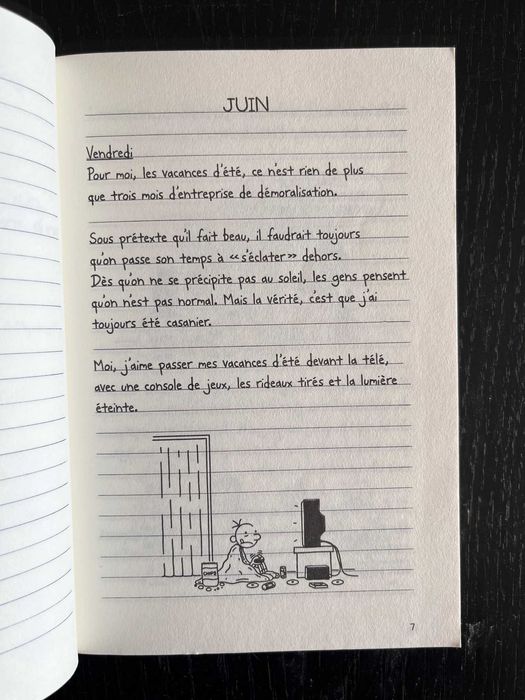 JUIN
Vendredi
Pour moi, les vacances d'été, ce n'est rien de plus
que trois mois d'entreprise de démoralisation.
Sous prétexte qu'il fait beau, il faudrait toujours
qu'on passe son temps à «s'éclater» dehors.
Dès qu'on ne se précipite pas au soleil, les gens pensent
qu'on n'est pas normal. Mais la vérité, c'est que j'ai
toujours été casanier.
Moi, j'aime passer mes vacances d'été devant la télé,
avec une console de jeux, les rideaux tirés et la lumière
éteinte.
CHIPS
7